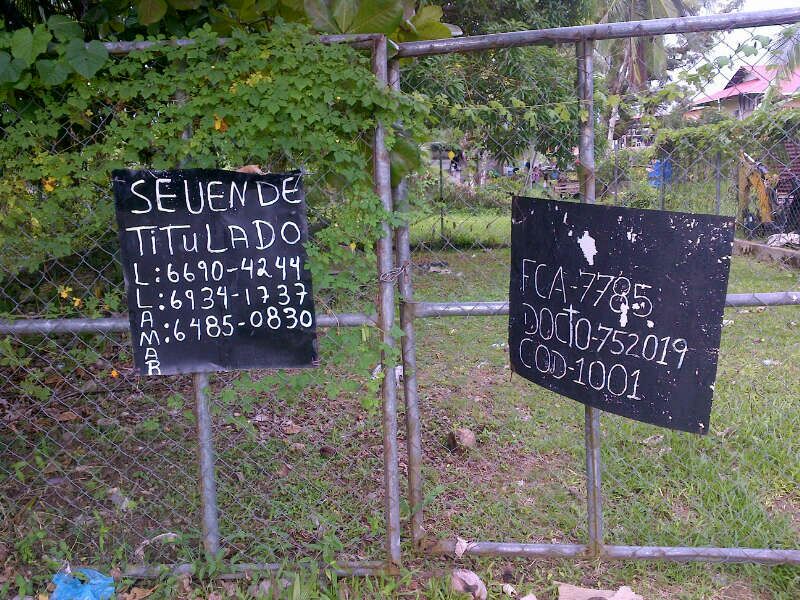 SE VENDE
TITULADO
L:6690-4244
L:6934-1737
A
M:6485-0830
A
R
FCA-7785
DOCTO-752019
COD-1001